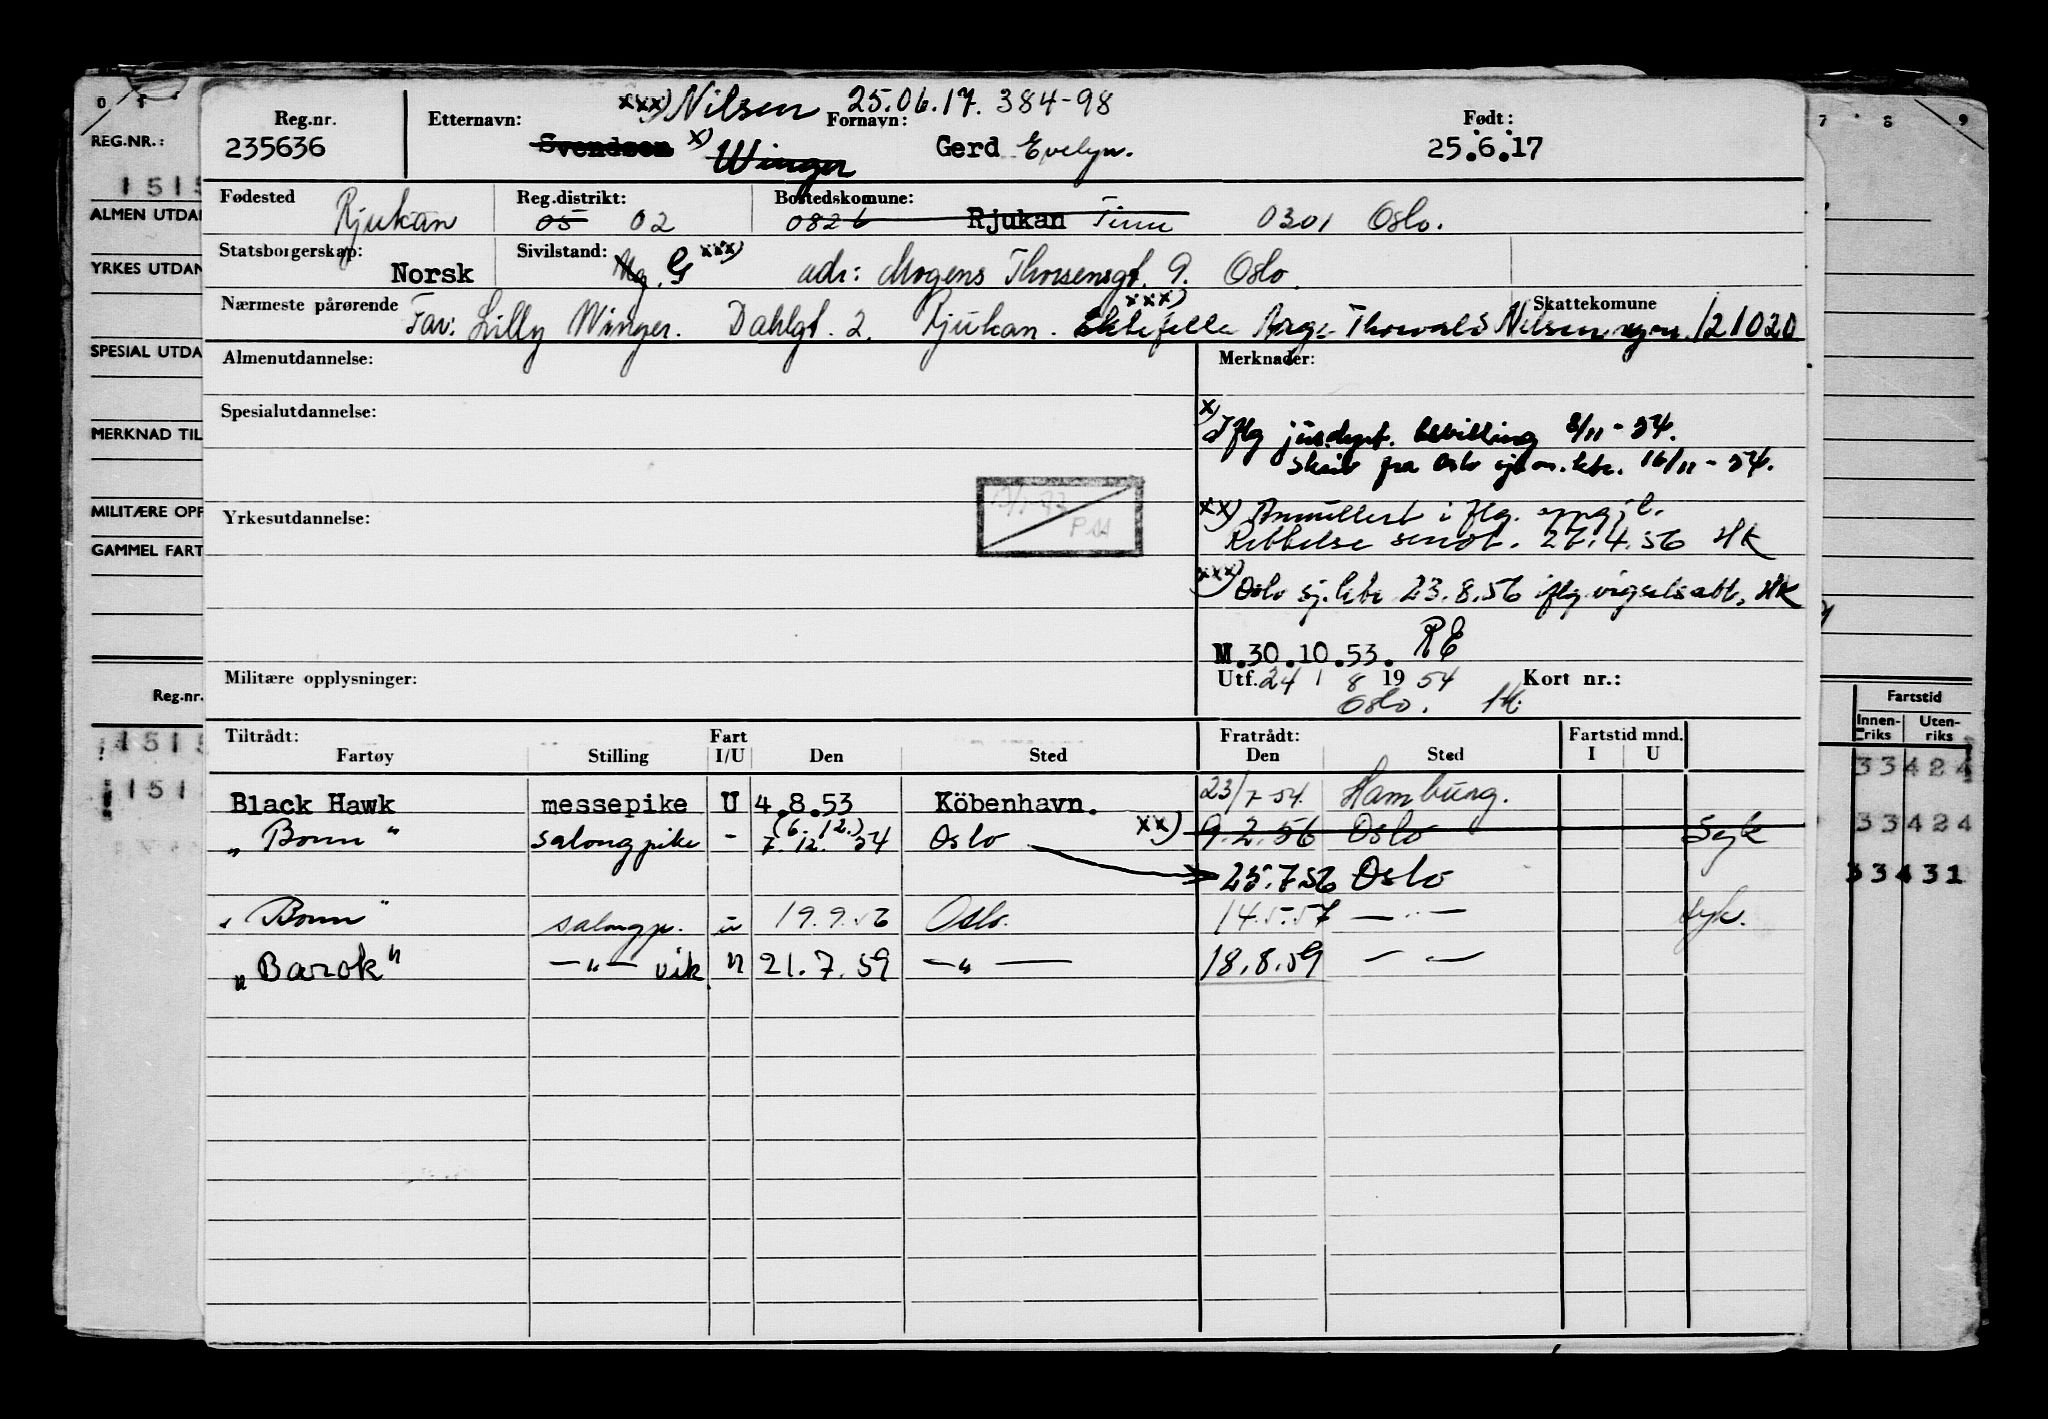 xxx) Nilsen 25.06.17. 384-98
Reg.nr. Etternavn: Fornavn: Født:
235636 Svendsen x) Winger Gerd Evelyn. 25.6.17
Fødested Rjukan Reg.distrikt: 05 02 Bostedskomune: 0826 Rjukan Tinn 0301 Oslo.
Statsborgerskap: Norsk Sivilstand: Ug. G xxx) adr: Mogens Thorsensgt. 9. Oslo.
Nærmeste pårørende Far: Lilly Winger. Dahlgt. 2. Rjukan. xxx) Ektefelle Aage Thorvald Nilsen 121020
Skattekomune
Almenutdannelse: Merknader:
Spesialutdannelse:
x) Iflg jus.dept. bevilling 8/11-54.
skriv fra Oslo sjøm.ktr. 16/11-54.
Yrkesutdannelse:
xx) Annullert i flg. oppgj.l.
Rettelse sendt. 27.4.56 HK
xxx) Oslo sj.ktr 23.8.56 iflg vigselsatt. HK
M.30.10.53. RE
Militære opplysninger: Utf. 24 / 8 19 54 Kort nr.:
Oslo. HK
Tiltrådt: Fart Fratrådt: Fartstid mnd.
Fartøy Stilling I/U Den Sted Den Sted I U
Black Hawk messepike U 4.8.53 Köbenhavn. 23/7-54. Hamburg.
„ Bonn " salongpike - (6.12.) 7.12.54 Oslo xx) 9.2.56 Oslo Syk
25.7.56 Oslo
„ Bonn " salongp. u 19.9.56 Oslo. 14.5.57 — " — syk.
„ Barok " — " — vik. " 21.7.59 — " — 18.8.59 — " —
REG.NR.:
1515
ALMEN UTDAN
YRKES UTDAN
SPESIAL UTDA
MERKNAD TIL
MILITÆRE OPP
GAMMEL FART
Reg.nr.
1515
151
7 8 9
Fartstid
Innen-riks Uten-riks
33424
33424
33431